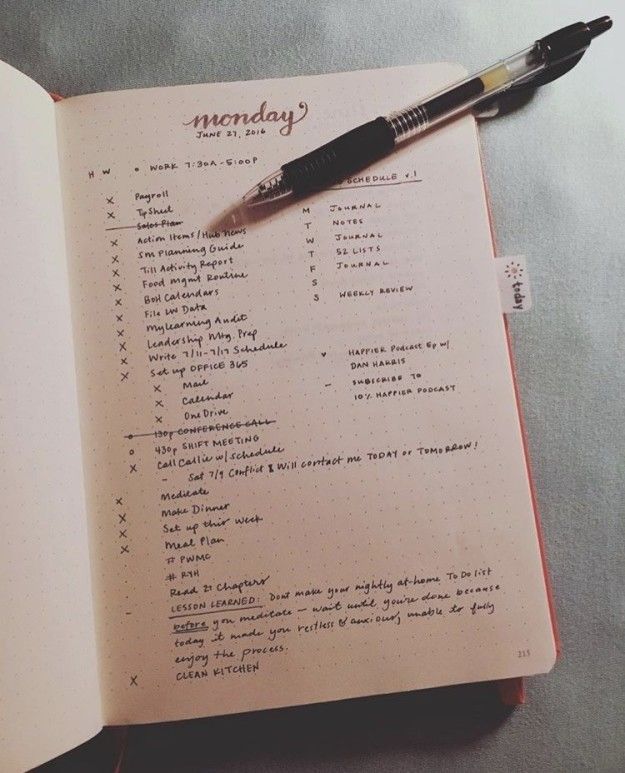 monday
JUNE 27, 2016
H W o WORK 7:30A-5:00P
x Payroll
x TipSheet
Sales Plan
x Action Items/Hub News
x SM Planning Guide
x Till Activity Report
x Food Mgmt Routine
x BOH Calendars
x File LW Data
x My Learning Audit
x Leadership Mtg. Prep
x Write 7/11-7/17 Schedule
x Set up OFFICE 365
x Mail
x Calendar
x OneDrive
o 130p CONFERENCE CALL
o 430p SHIFT MEETING
x Call Callie w/ schedule
- Sat 7/9 Conflict & Will contact me TODAY or TOMORROW!
Medicate
x Make Dinner
x Set up this week
x Meal Plan
x # PWMC
# RYH
Read 27 Chapters
- LESSON LEARNED: Dont make your nightly at-home To Do list
before you meditate - wait until you're done because
today it made you restless & anxious, unable to fully
enjoy the process.
x CLEAN KITCHEN
SCHEDULE v.1
M JOURNAL
T NOTES
W JOURNAL
T 52 LISTS
F JOURNAL
S
S WEEKLY REVIEW
♥ HAPPIER Podcast Ep w/
DAN HARRIS
- SUBSCRIBE TO
10% HAPPIER PODCAST
today